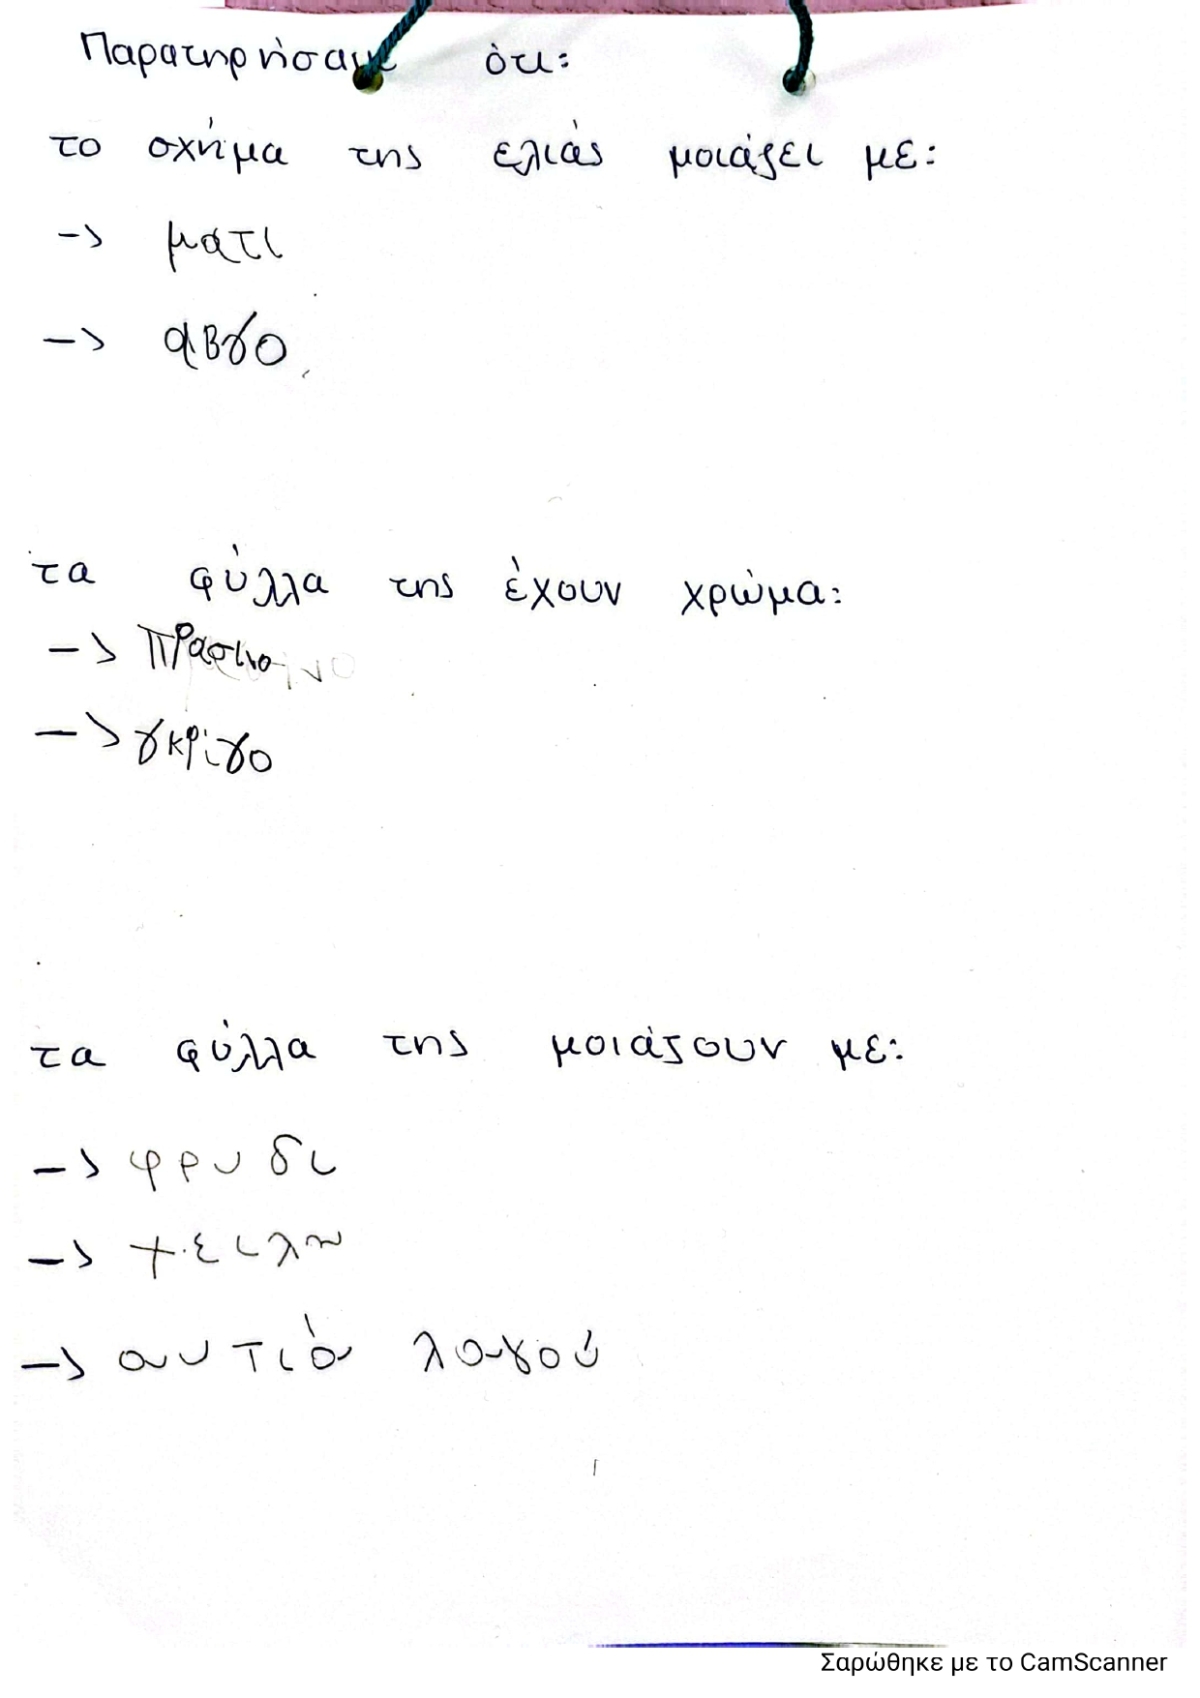 Παρατηρήσαμε ότι:
το σχήμα της ελιάς μοιάζει με:
-> ματι
-> αβγο
τα φύλλα της έχουν χρώμα:
-> πρασινο
-> γκρίγο
τα φύλλα της μοιάζουν με:
-> φρυδι
-> χειλη
-> αυτιά λαγού
Σαρώθηκε με το CamScanner